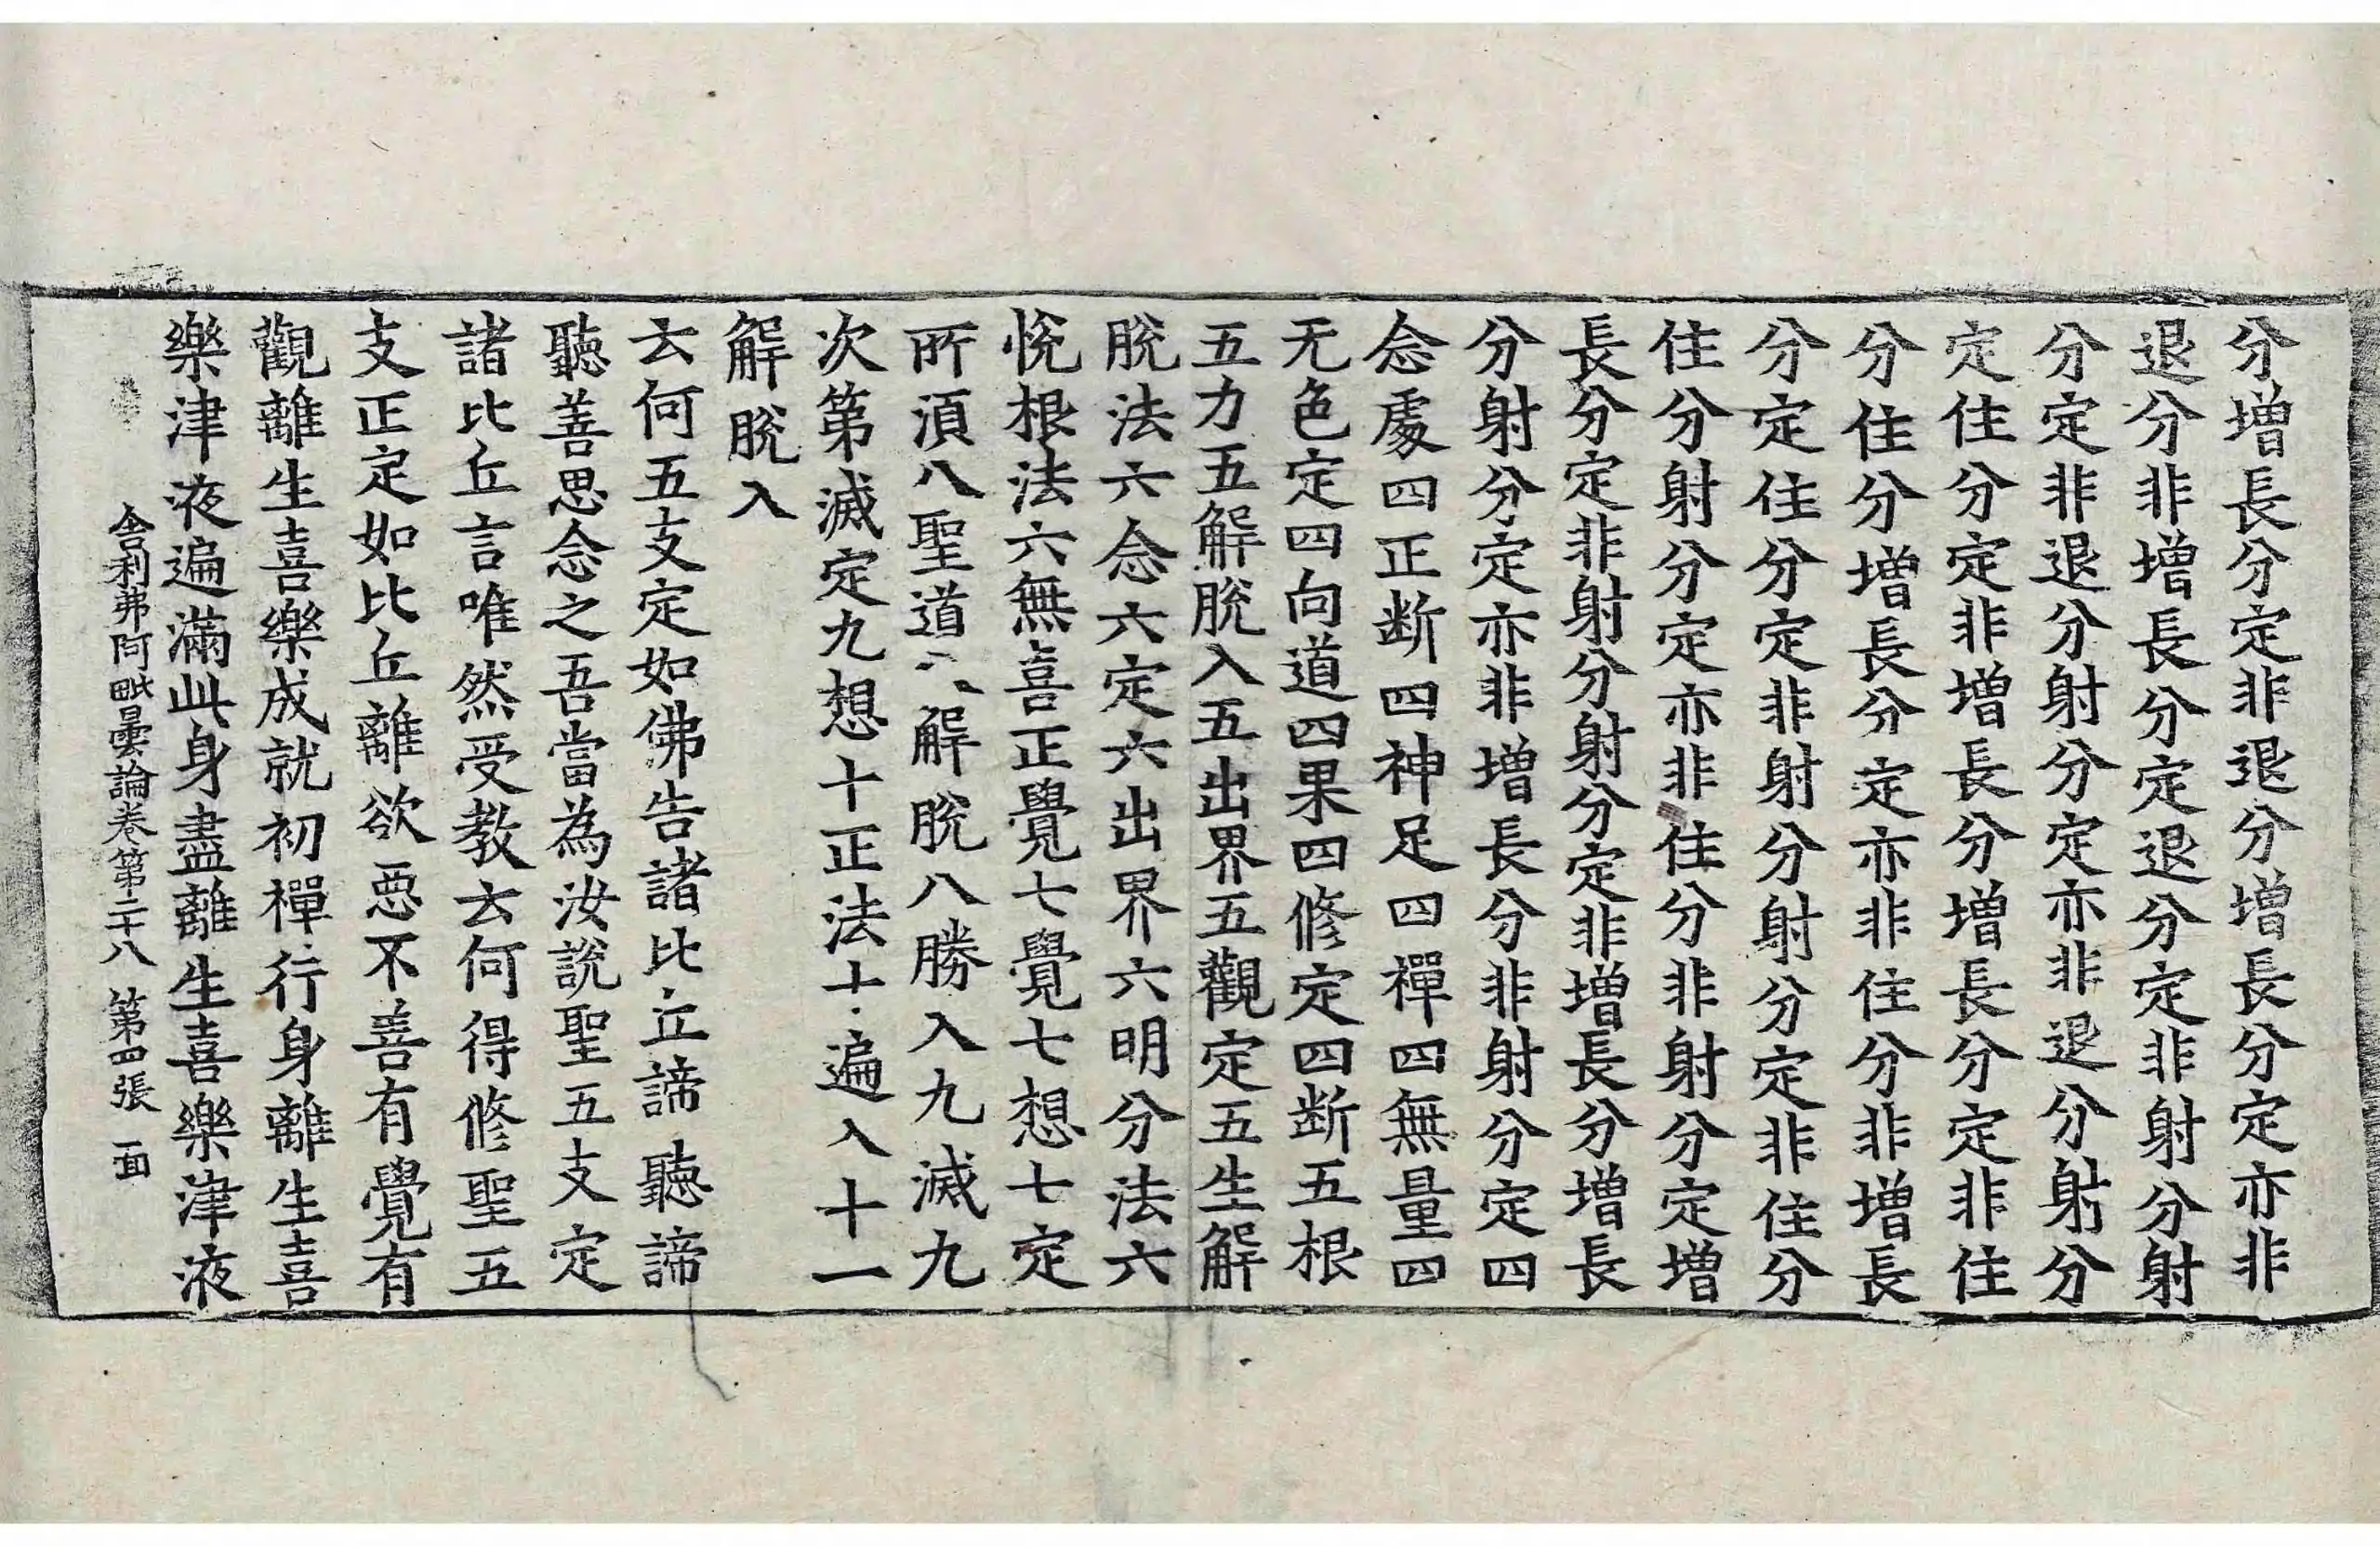 分增長分定非退分增長分定亦非
退分非增長分定退分定非射分射
分定非退分射分定亦非退分射分
定住分定非增長分增長分定非住
分住分增長分定亦非住分非增長
分定住分定非射分射分定非住分
住分射分定亦非住分非射分定增
長分定非射分射分定非增長分增長
分射分定亦非增長分非射分定四
念處四正断四神足四禪四無量四
无色定四向道四果四修定四断五根
五力五解脫入五出界五觀定五生解
脫法六念六定六出界六明分法六
悅根法六無喜正覺七覺七想七定
所湏八聖道八解脫八勝入九滅九
次第滅定九想十正法十遍入十一
解脫入
云何五支定如佛告諸比丘諦聽諦
聽善思念之吾當為汝說聖五支定
諸比丘言唯然受教云何得修聖五
支正定如比丘離欲惡不善有覺有
觀離生喜樂成就初禪行身離生喜
樂津液遍滿此身盡離生喜樂津液
舍利弗阿毗曇論卷第二十八 第四張 一面